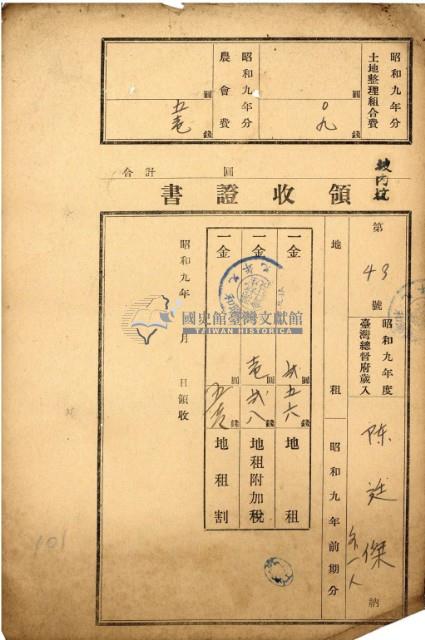 昭和九年分
土地整理組合費
圓
〇九
錢
昭和九年分
農會費
圓
五壱
錢
合計 圓
坡内坑
領收證書
第 43 號
昭和九年度
臺灣總督府歲入
陳廷傑
外一人
納
地租
昭和九年前期分
一金
圓
弐五六
錢
地租
一金
壱
圓
弐八
錢
地租附加稅
一金
圓
錢
地租割
昭和九年 月 日領收
國史館臺灣文獻館
TAIWAN HISTORICA
101